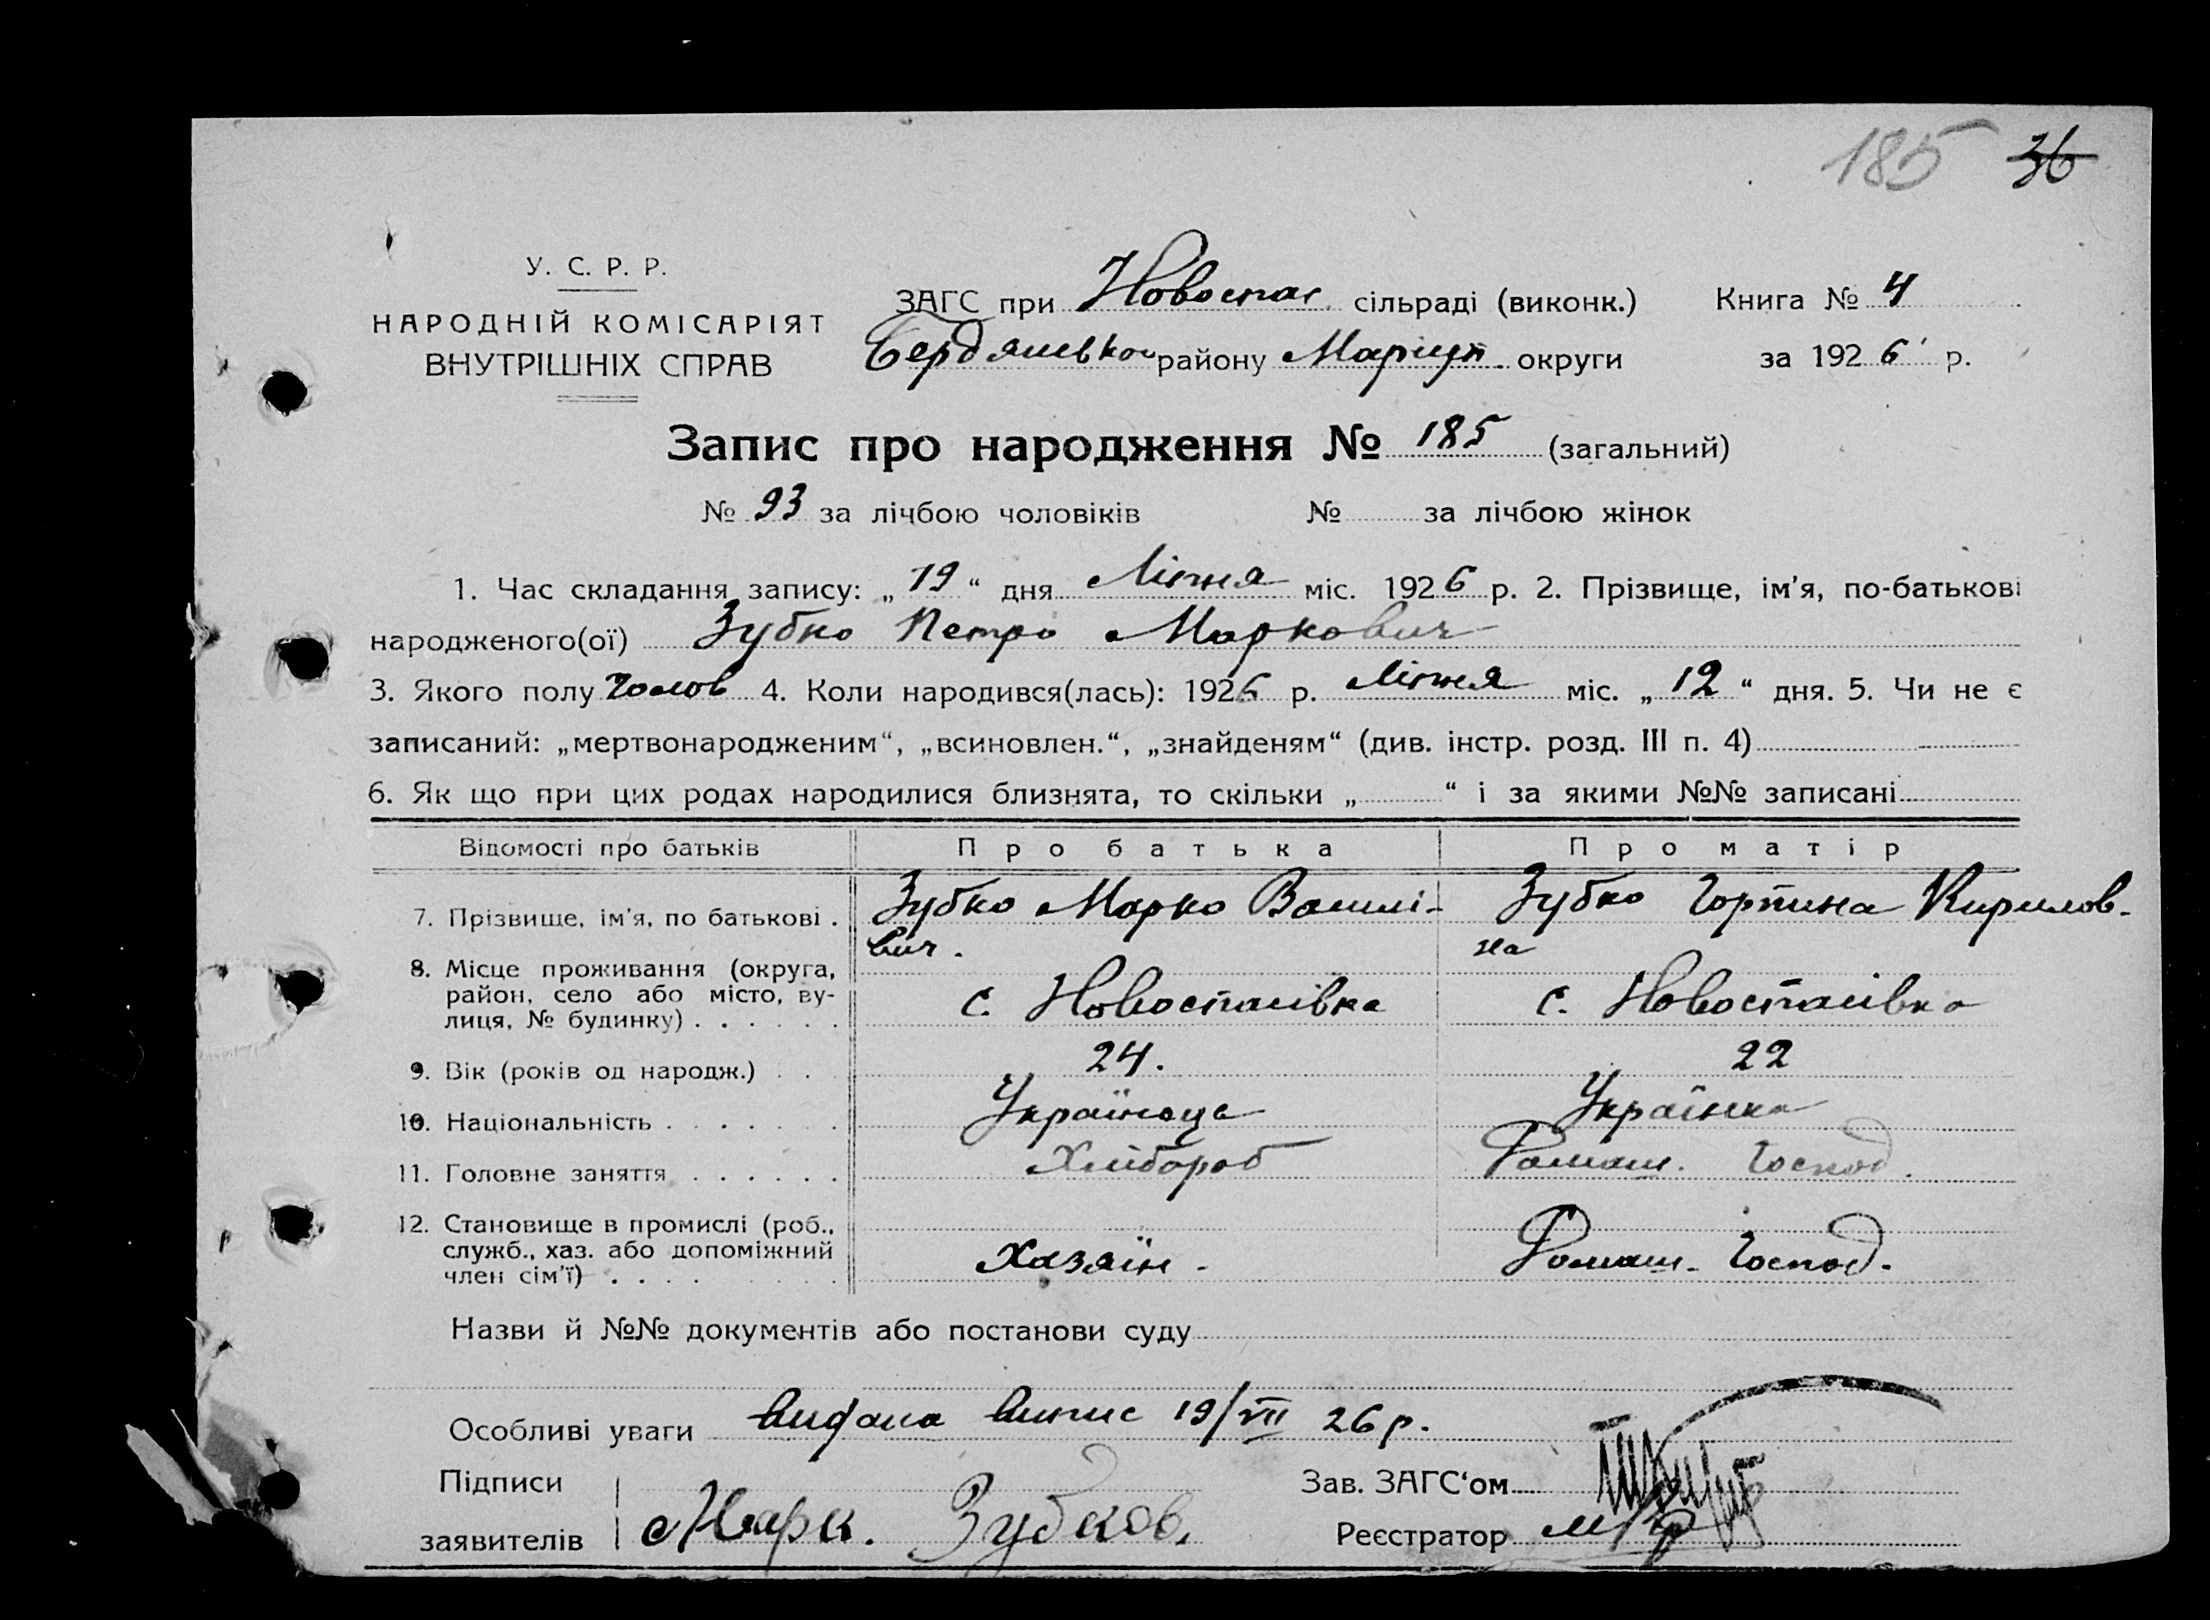 185 36
У. С. Р. Р.
НАРОДНІЙ КОМІСАРІЯТ
ВНУТРІШНІХ СПРАВ
ЗАГС при Новоспас. сільраді (виконк.) Книга № 4
Бердянсько району Маріуп. округи за 1926 р.
Запис про народження № 185 (загальний)
№ 93 за лічбою чоловіків № за лічбою жінок
1. Час складання запису: „19“ дня Липня міс. 1926 р. 2. Прізвище, ім'я, по-батькові
народженого(ої) Зубко Петро Маркович
3. Якого полу Чолов 4. Коли народився(лась): 1926 р. Липня міс. „12“ дня. 5. Чи не є
записаний: „мертвонародженим“, „всиновлен.“, „знайденям“ (див. інстр. розд. III п. 4)
6. Як що при цих родах народилися близнята, то скільки „ “ і за якими №№ записані
Відомості про батьків Про батька Про матір
7. Прізвище, ім'я, по батькові . Зубко Марко Василі- Зубко Горпина Кирилов-
вич. на
8. Місце проживання (округа,
район, село або місто, ву-
лиця, № будинку) . . . . . . с. Новоспасівка с. Новоспасівка
9. Вік (років од народж.) . . . 24. 22
10. Національність . . . . . . . Українець Українка
11. Головне заняття . . . . . . Хлібороб Домаш. Господ.
12. Становище в промислі (роб.,
служб., хаз. або допоміжний
член сім'ї) . . . . Хазяїн. Домаш. Господ.
Назви й №№ документів або постанови суду
Особливі уваги видана випис 19/VII 26 р.
Підписи Зав. ЗАГС'ом
заявителів Марк. Зубков. Реєстратор